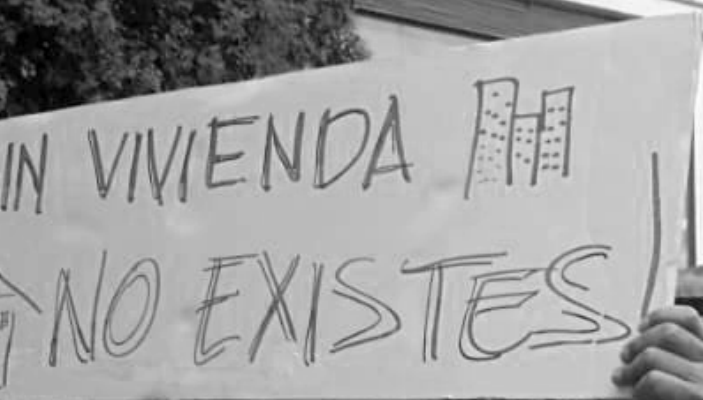 IN VIVIENDA
NO EXISTES!